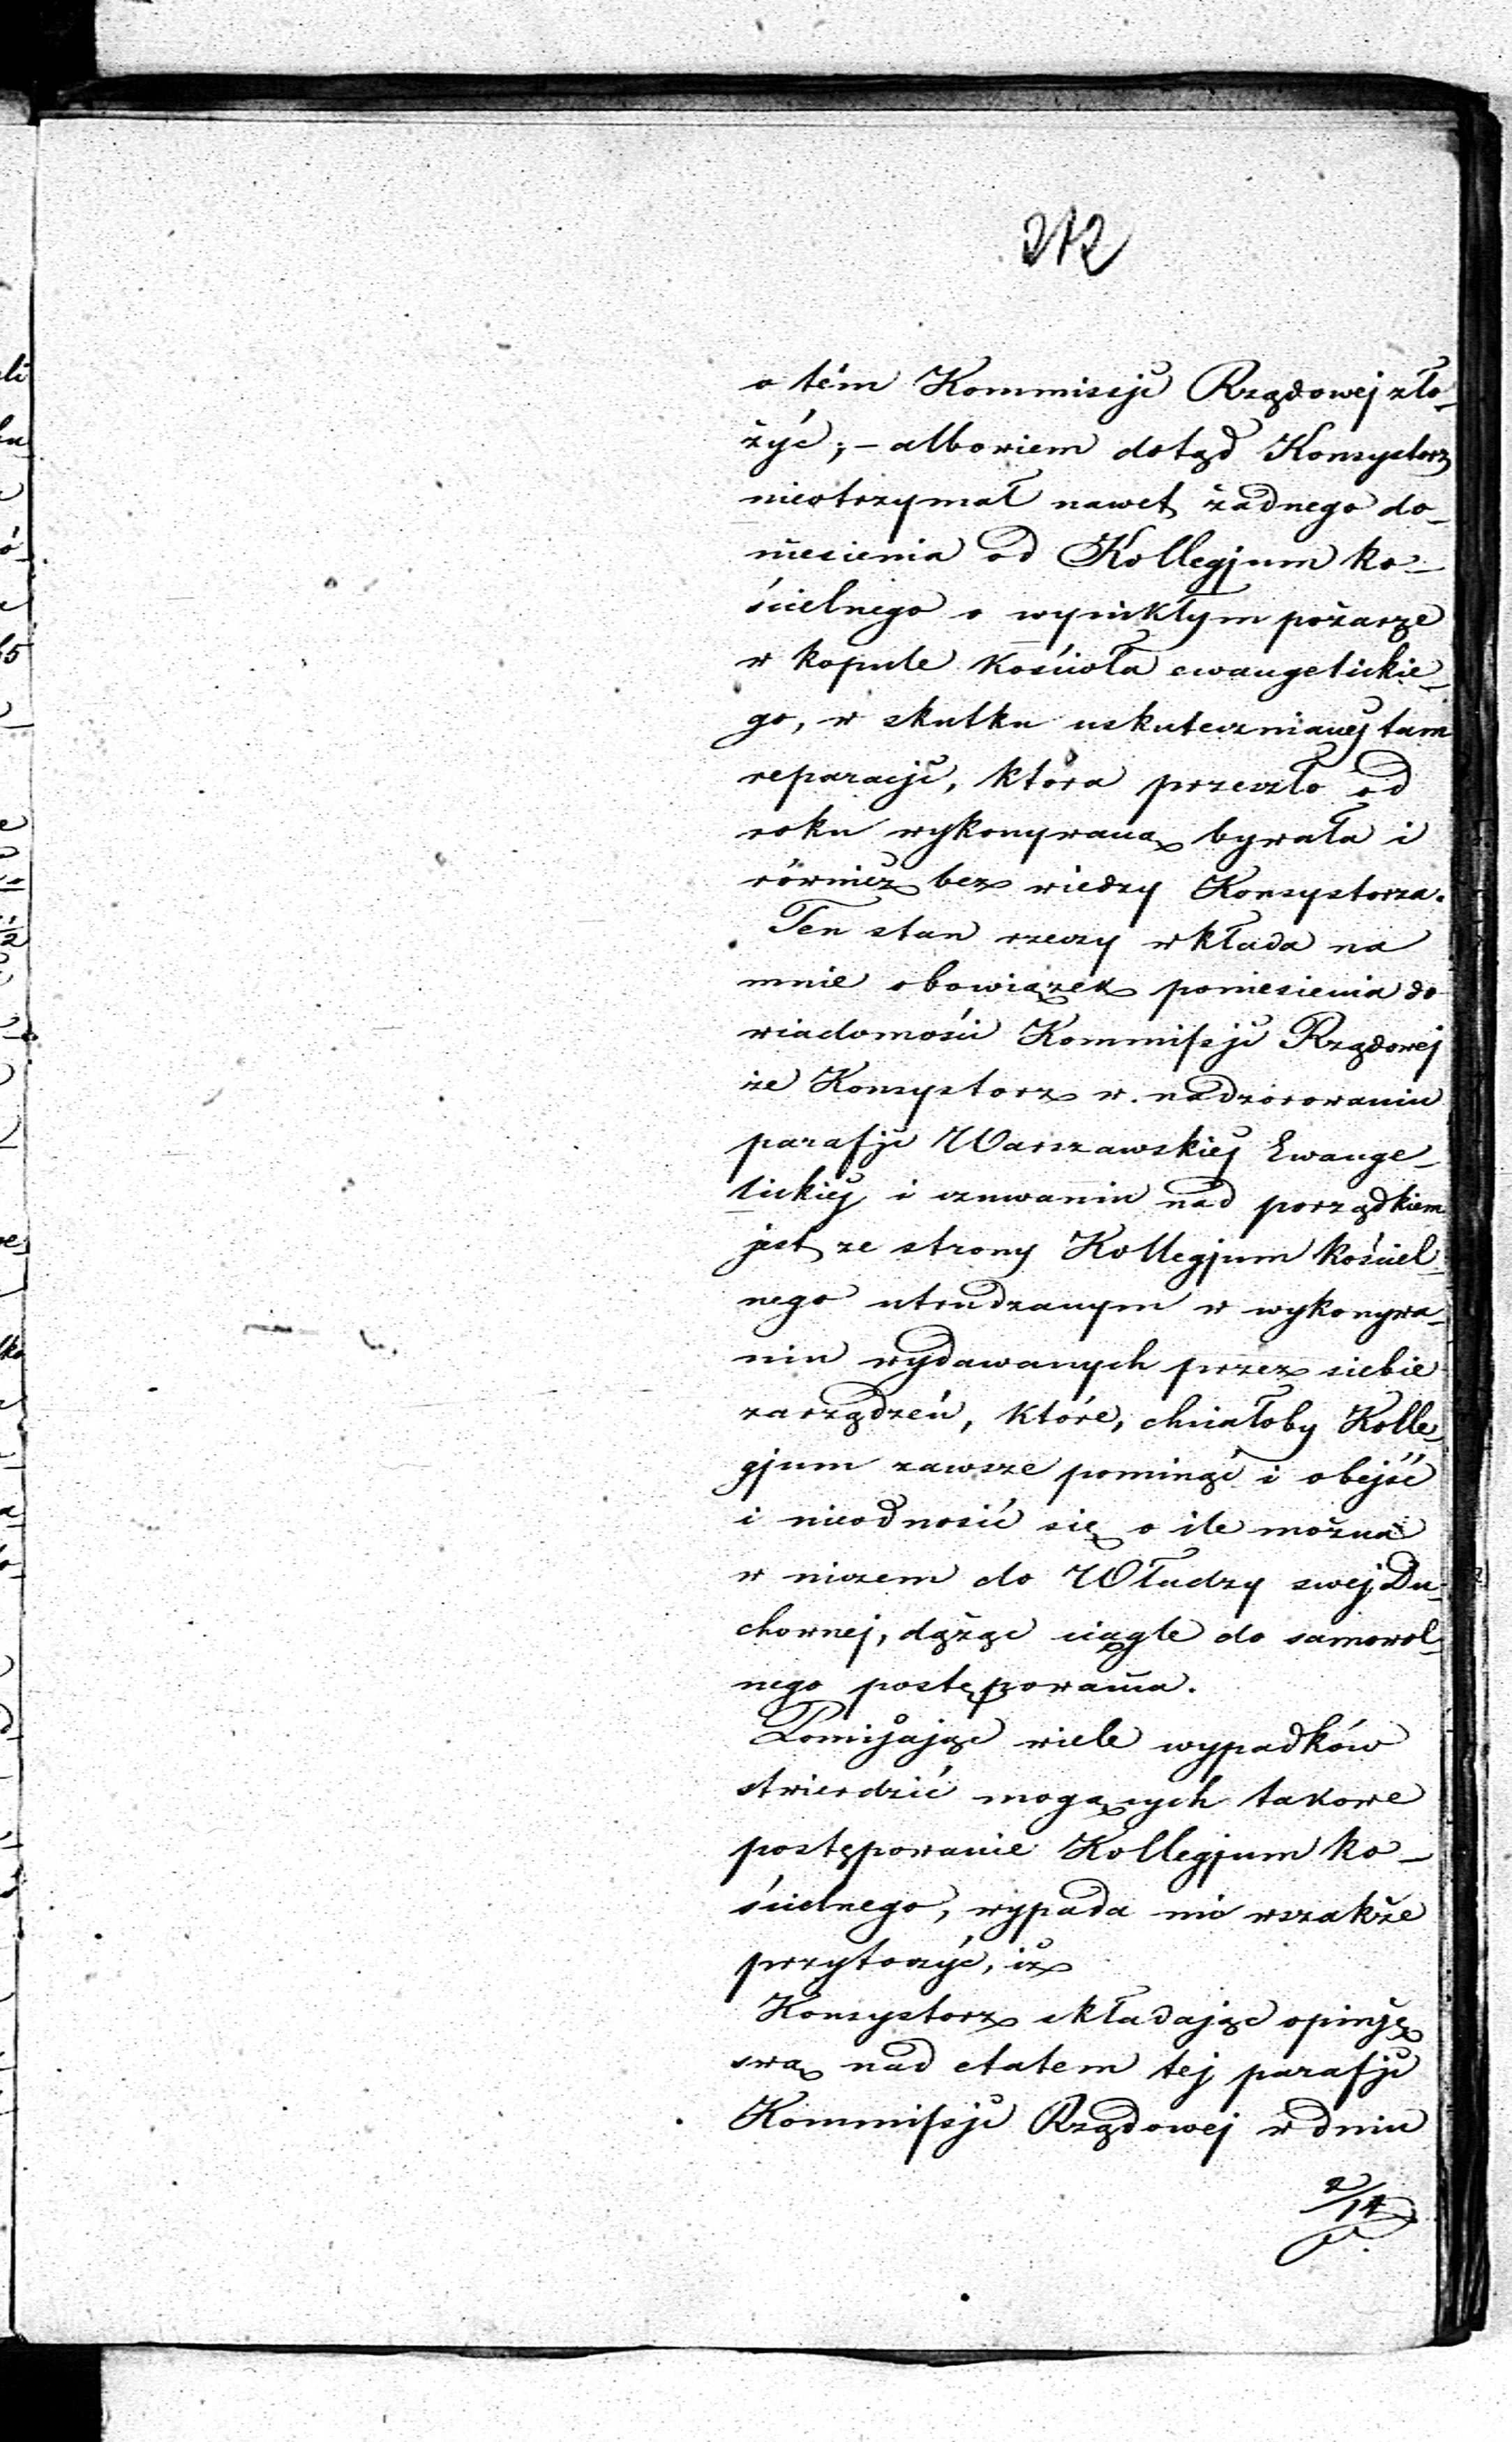 212
o tém Kommissji Rządowej zło-
żyć; – albowiem dotąd Konsystorz
nieotrzymał nawet żadnego do-
niesienia od Kollegjum ko-
ścielnego o wynikłym pożarze
w kopule kościoła ewangelickie-
go, w skutku uskutecznianej tam
reparacji, która przeszło od
roku wykonywaną bywała i
również bez wiedzy Konsystorza.
Ten stan rzeczy wkłada na
mnie obowiązek poniesienia do
wiadomości Kommissji Rządowej
że Konsystorz w nadzorowaniu
parafji Warszawskiej Ewange-
lickiej i czuwaniu nad porządkiem
jest ze strony Kollegjum kościel-
nego utrudzanym w wykonywa-
niu wydawanych przez siebie
zarządzeń, które, chciałoby Kolle-
gjum zawsze pominąć i obejść
i nieodnosić się o ile można
w niczem do Władzy swej Du-
chownej, dążąc ciągle do samowol-
nego postępowania.
Pomijając wiele wypadków
stwierdzić mogących takowe
postępowanie Kollegjum ko-
ścielnego, wypada mi wszakże
przytoczyć, iż
Konsystorz składając opinję
swą nad etatem tej parafji
Kommissji Rządowej w dniu
2/14